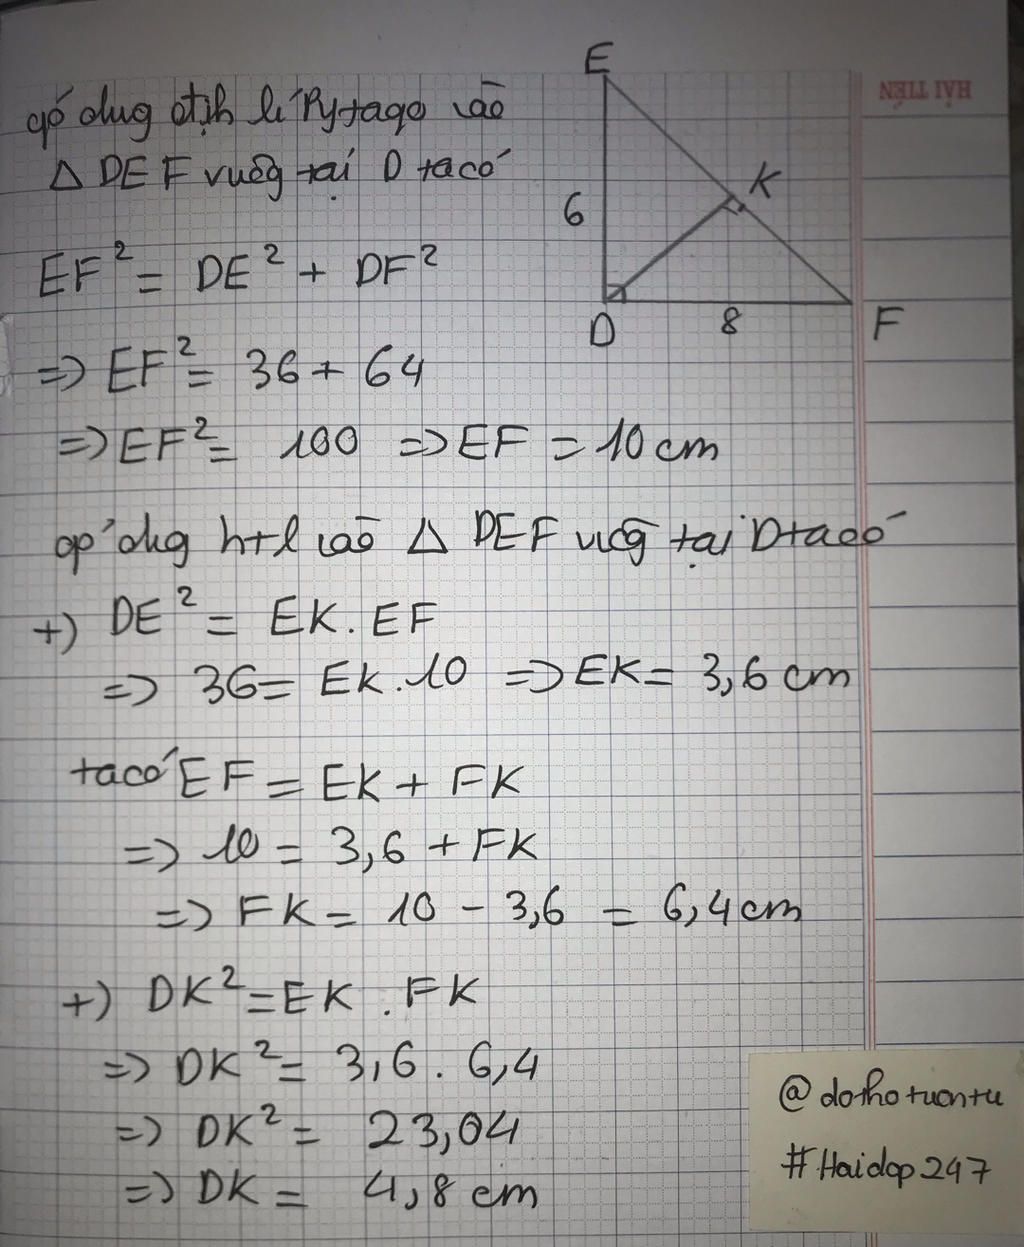 áp dụng định lí Pytago vào
Δ DEF vuông tại D ta có
EF² = DE² + DF²
=> EF² = 36 + 64
=> EF² = 100 => EF = 10 cm
áp dụng htl vào Δ DEF vuông tại D ta có
+) DE² = EK . EF
=> 36 = EK . 10 => EK = 3,6 cm
ta có EF = EK + FK
=> 10 = 3,6 + FK
=> FK = 10 - 3,6 = 6,4 cm
+) DK² = EK . FK
=> DK² = 3,6 . 6,4
=> DK² = 23,04
=> DK = 4,8 cm
E
K
6
D
8
F
HẢI TIẾN
@dothotuontu
#Haidop247